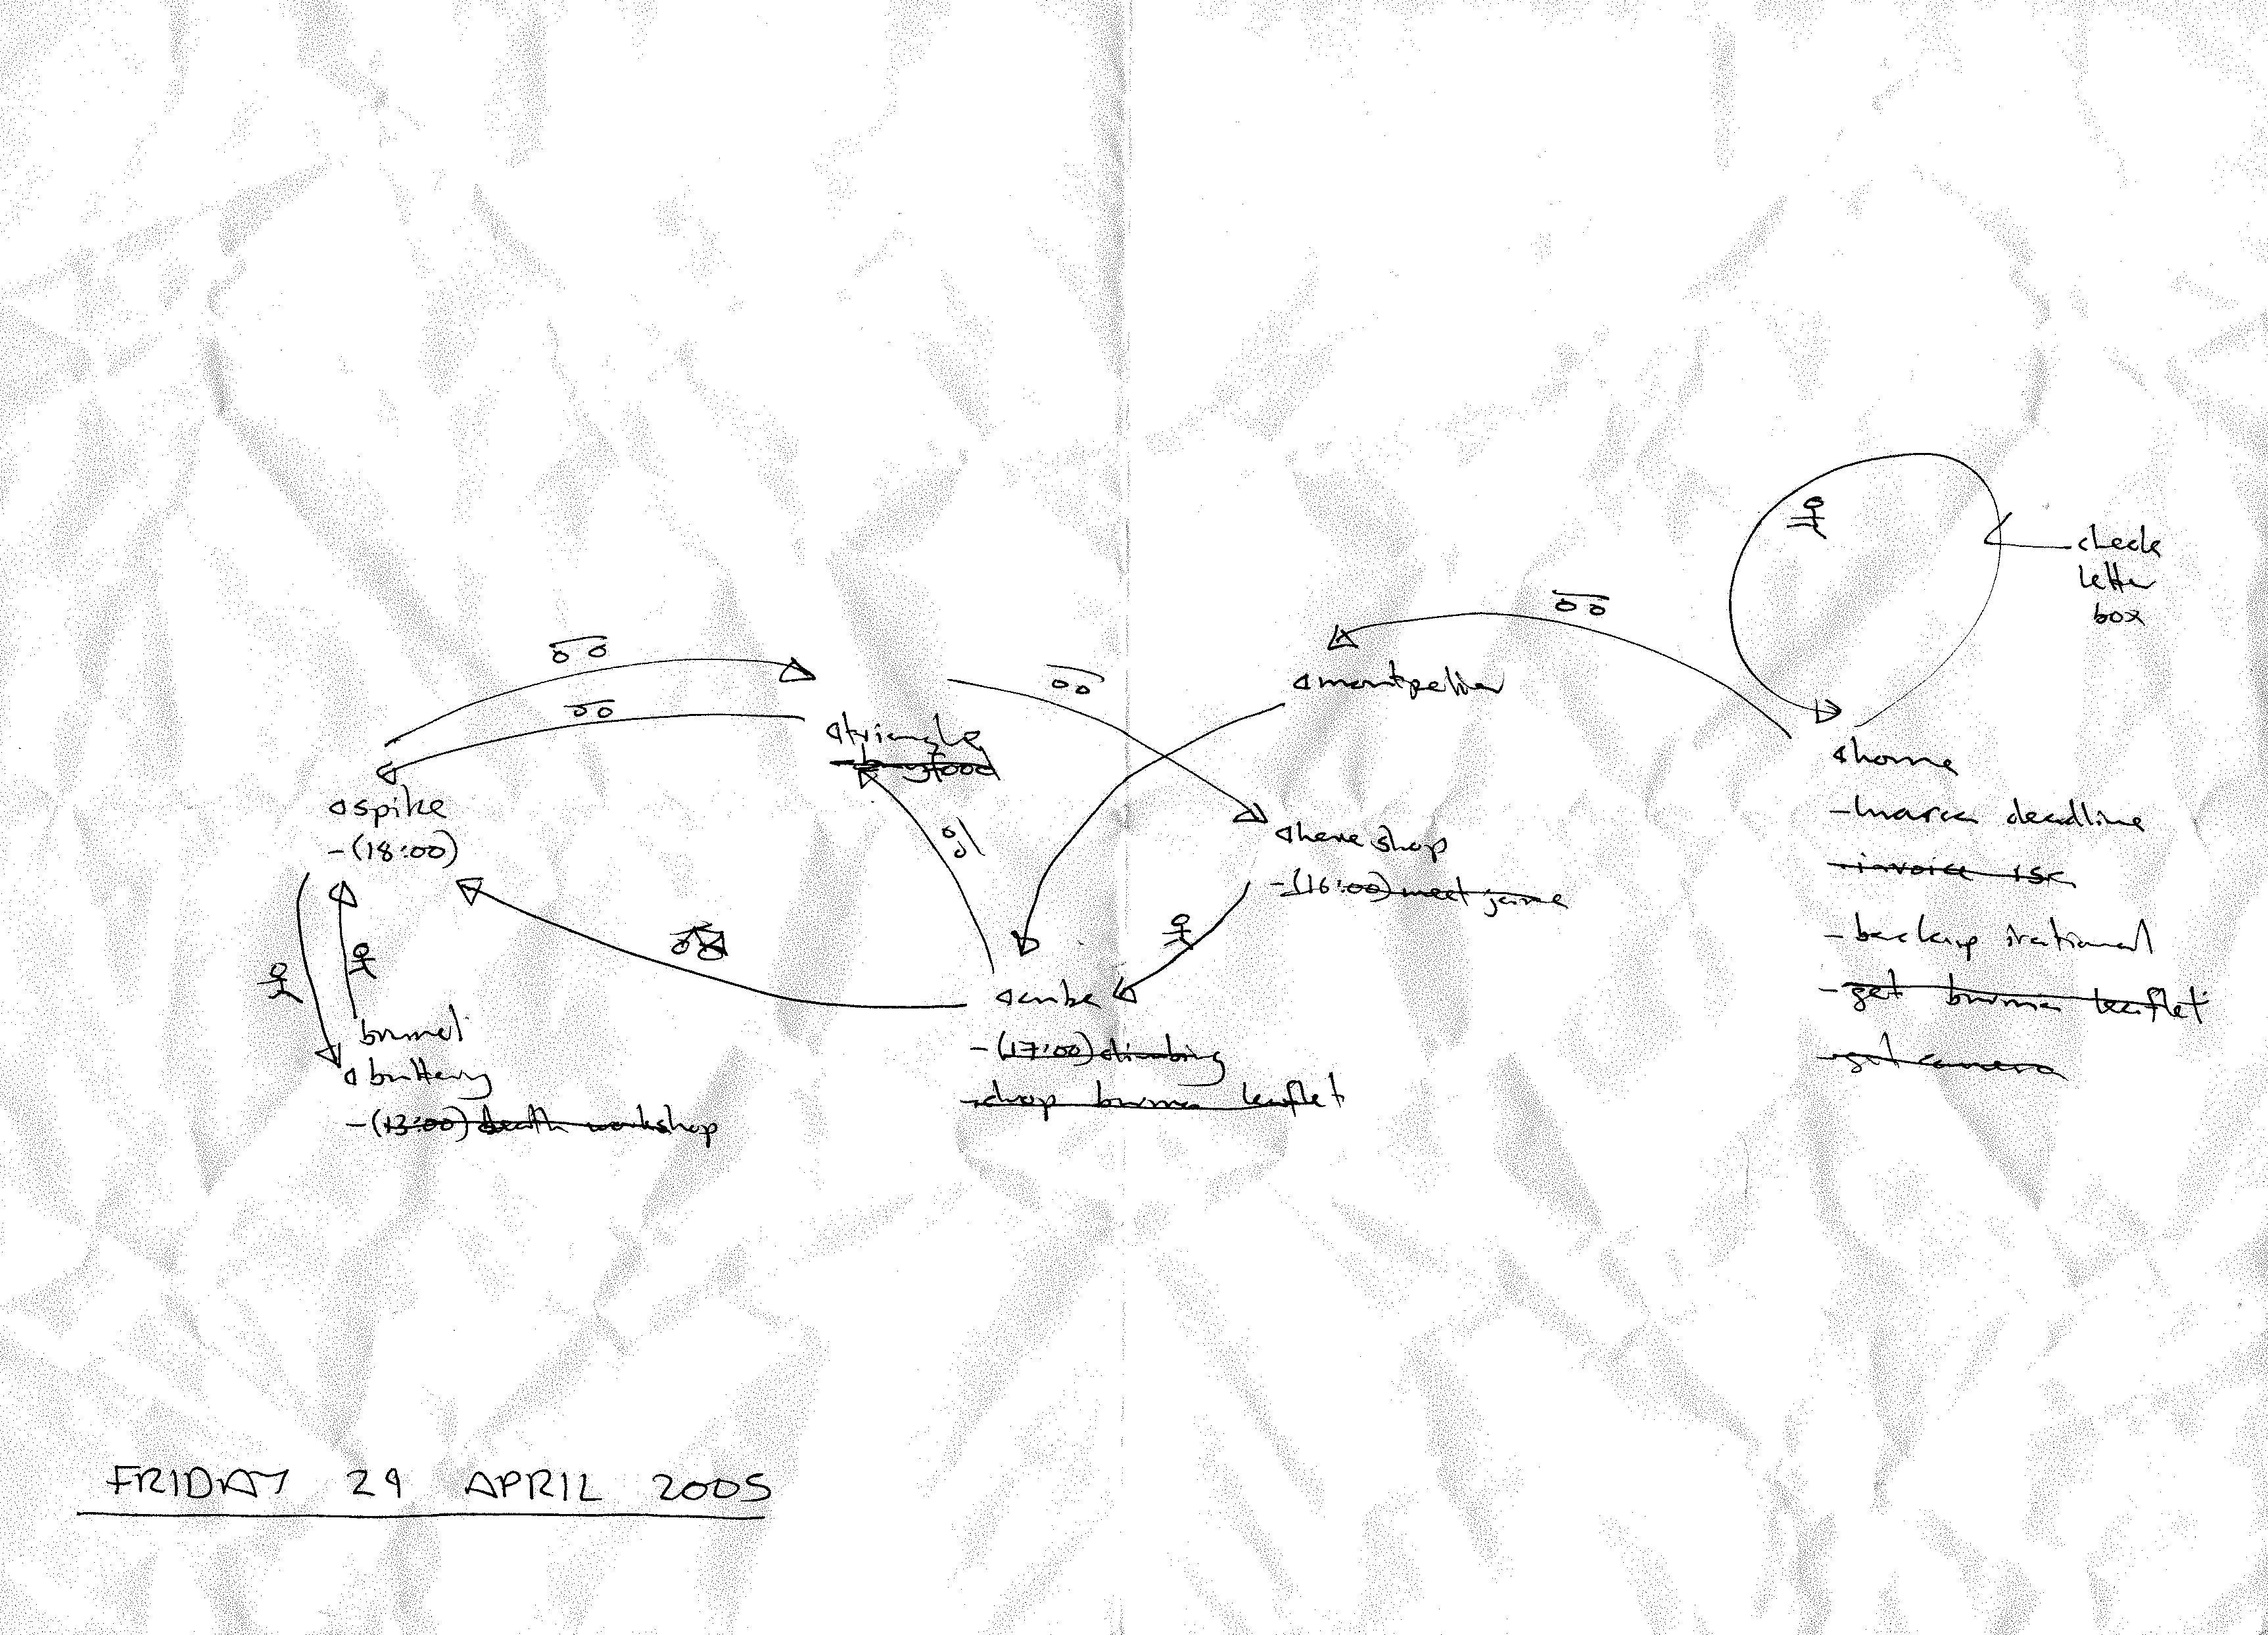 check
letter
box
montpelier
triangle
- buy food
home
spike
- (18:00)
- deadline
here shop
- (16:00) meet
- invoice
- backup irational
- get leaflet
- get camera
cube
- (17:00) climbing
- drop leaflet
brunel
buttery
- (13:00) death workshop
FRIDAY 29 APRIL 2005